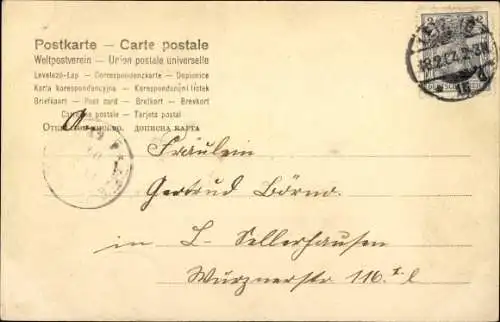 Postkarte — Carte postale
Weltpostverein — Union postale universelle
Levelező-Lap — Correspondenzkarte — Dopisnice
Karta korespondencyjna — Korespondenční lístek
Briefkaart — Post card — Brefkort — Brevkort
Cartolina postale — Tarjeta postal
Открытое письмо. ДОПИСНА КАРТА
Fräulein
Gertrud Börno.
in L- Sellerhausen
Wurznerstr 116. I l